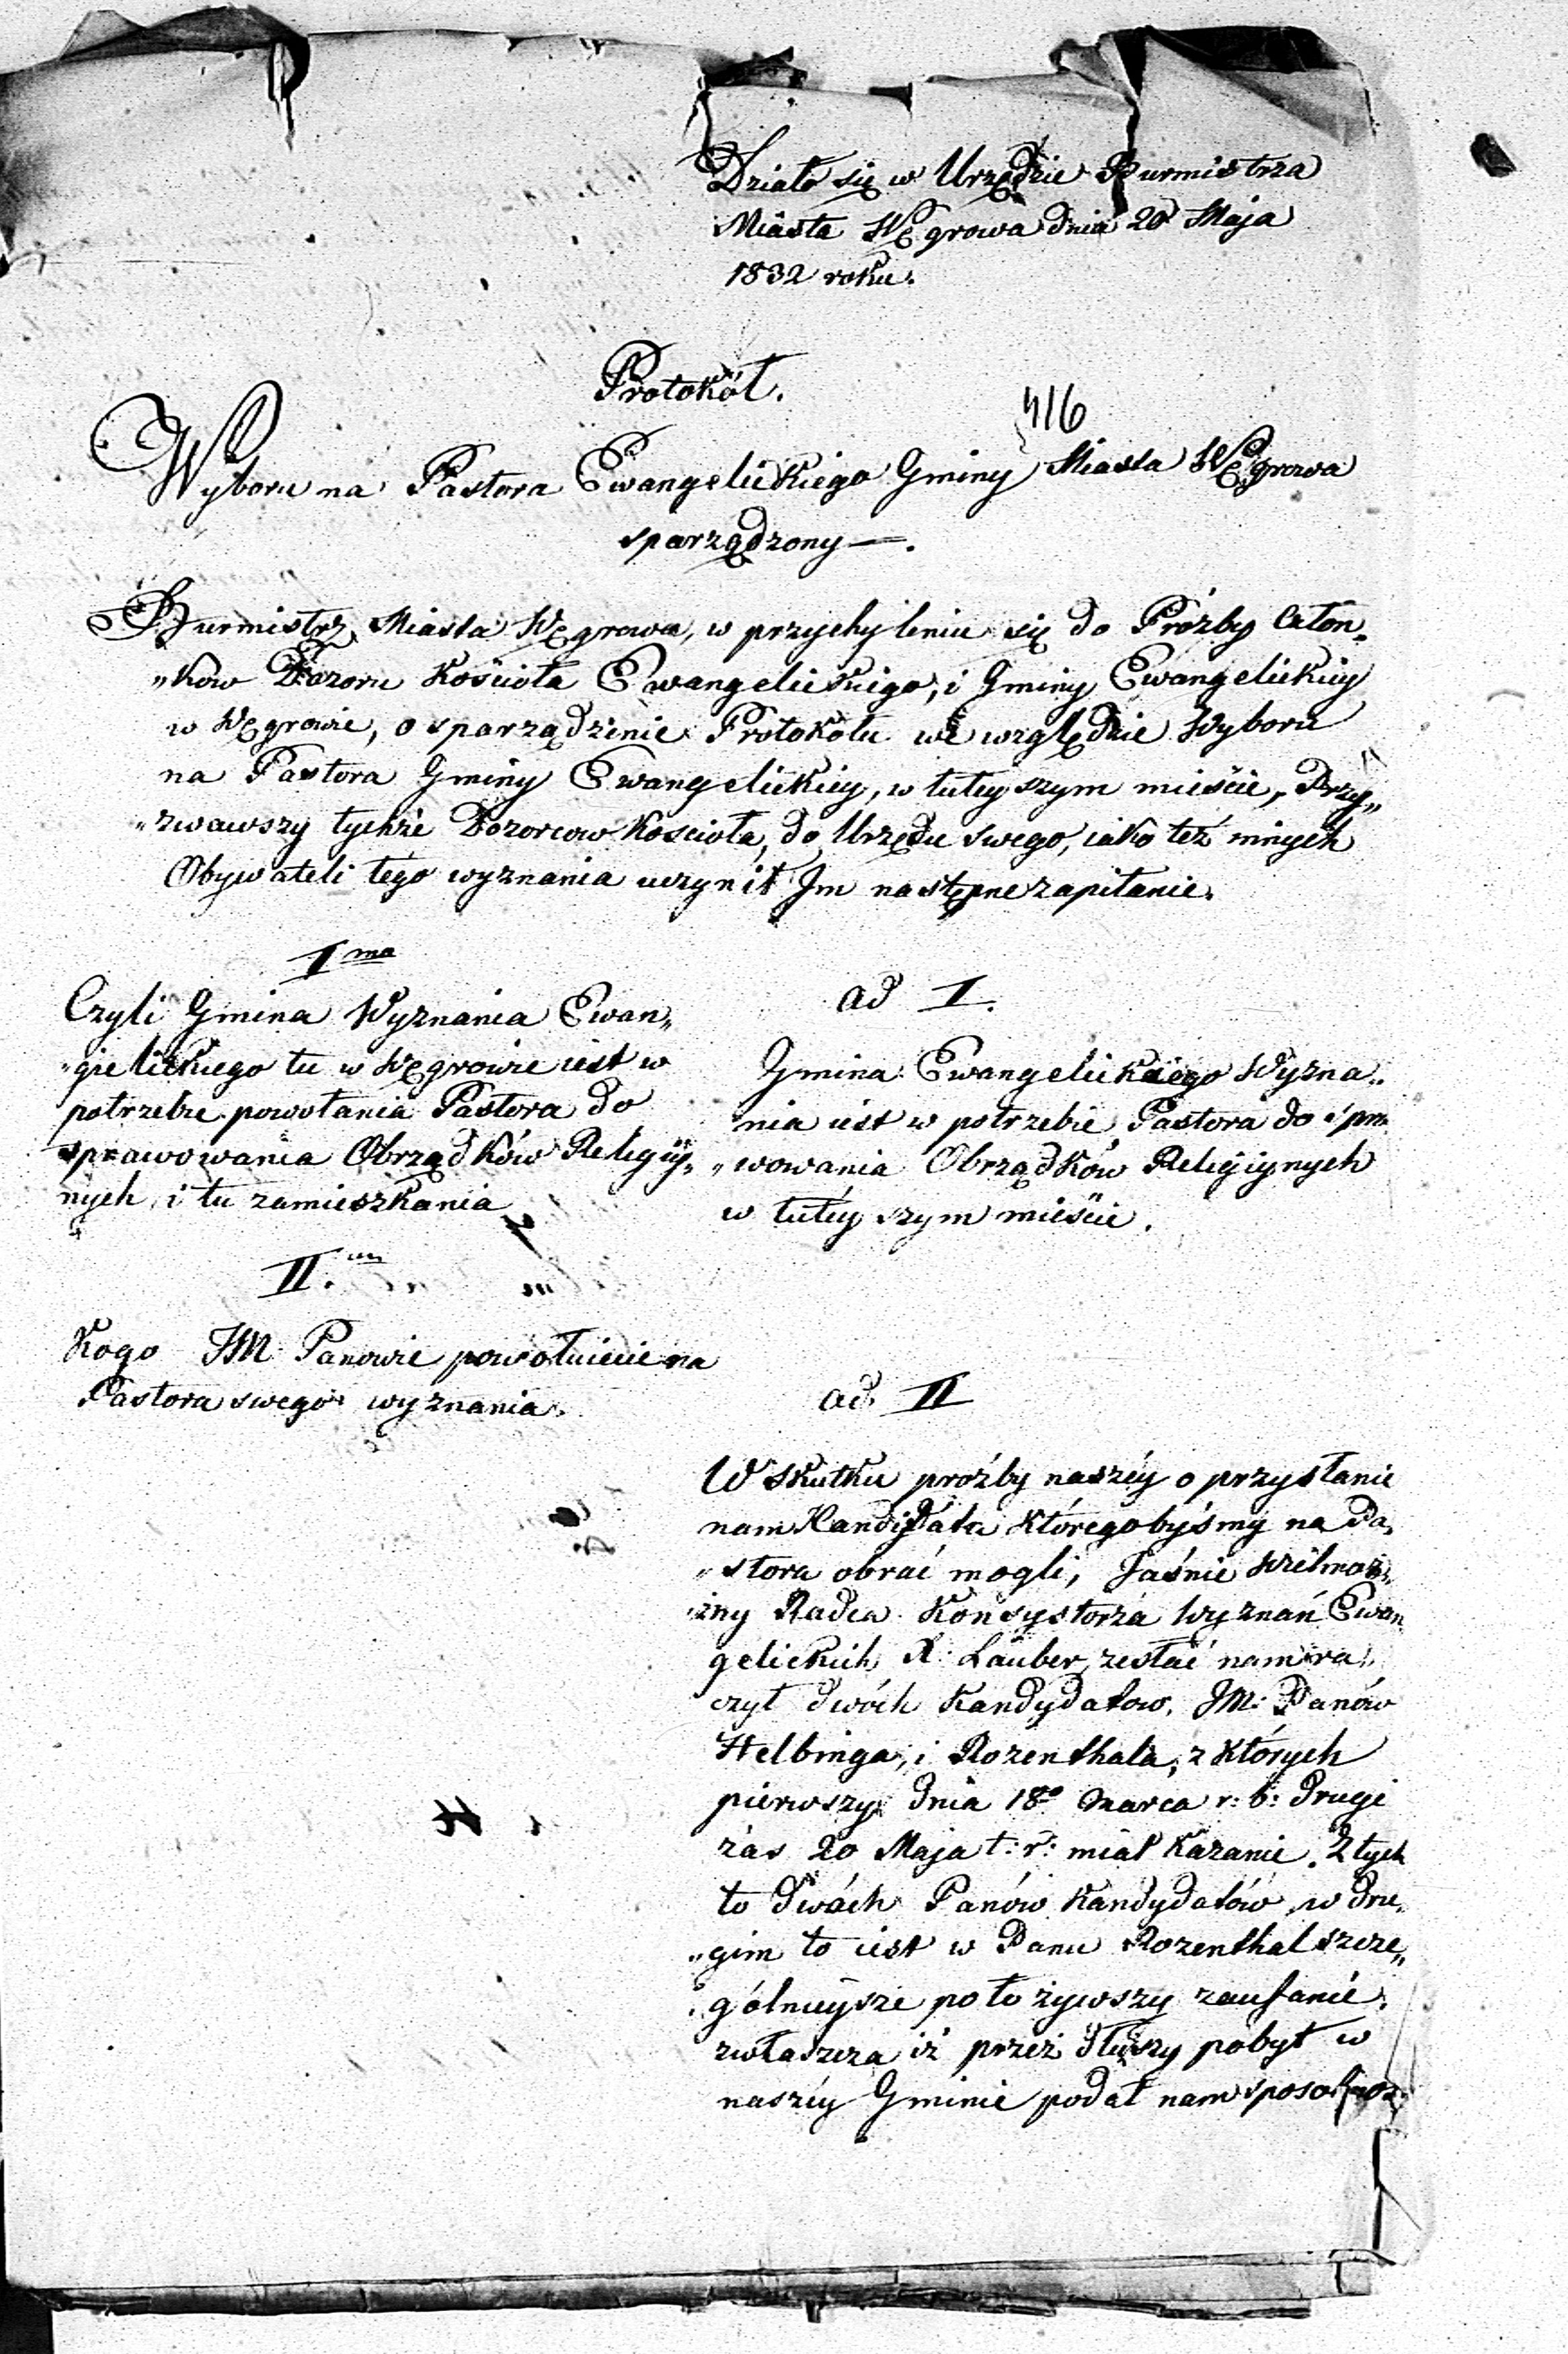 Działo się w Urzędzie Burmistrza
Miasta Węgrowa dnia 20 Maja
1832 roku.
Protokół.
416
Wyboru na Pastora Ewangelickiego Gminy Miasta Węgrowa
sporządzony —.
Burmistrz Miasta Węgrowa, w przychyleniu się do Próźby Człon„
„ków Dozoru Kościoła Ewangelickiego, i Gminy Ewangelickiey
w Węgrowie, o sporządzenie Protokołu we względzie Wyboru
na Pastora Gminy Ewangelickiey, w tuteyszym mieście, Przy„
„zwawszy tychże Dozorcow Kościoła, do Urzędu swego, iako też innych
Obywateli tego wyznania uczynił Im następne zapitanie.
I mo
Czyli Gmina Wyznania Ewan„
„gielickiego tu w Węgrowie iest w
potrzebie powołania Pastora do
sprawowania Obrządków Religiy„
nych, i tu zamieszkania
ad I.
Gmina Ewangelickiego Wyzna„
nia iest w potrzebie Pastora do spra
„wowania Obrządków Religiynych
w tuteyszym mieście.
II.
Kogo JM Panowie powołuiecie na
Pastora swego wyznania.
ad. II
W skutku proźby naszéy o przysłanie
nam Kandidata któregobyśmy na Pa„
„stora obrać mogli, Jaśnie Wielmoż„
żny Radca Konsystorza Wyznań Ewan
gelickich X: Lauber, zesłać nam ra„
czył dwóch Kandydatow, JM: Panów
Helbinga, i Rozenthala, z których
pierwszy dnia 18o Marca r: b: drugi
zas 20 Maja t: r: miał Kazanie. Z tych
to dwóch Panów Kandydatów, w dru„
„gim to iest w Panu Rozenthal szcze„
gólnieysze położywszy zaufanie,
zwłaszcza iż przez dłuszy pobyt w
naszéy Gminie podał nam sposobnoś„